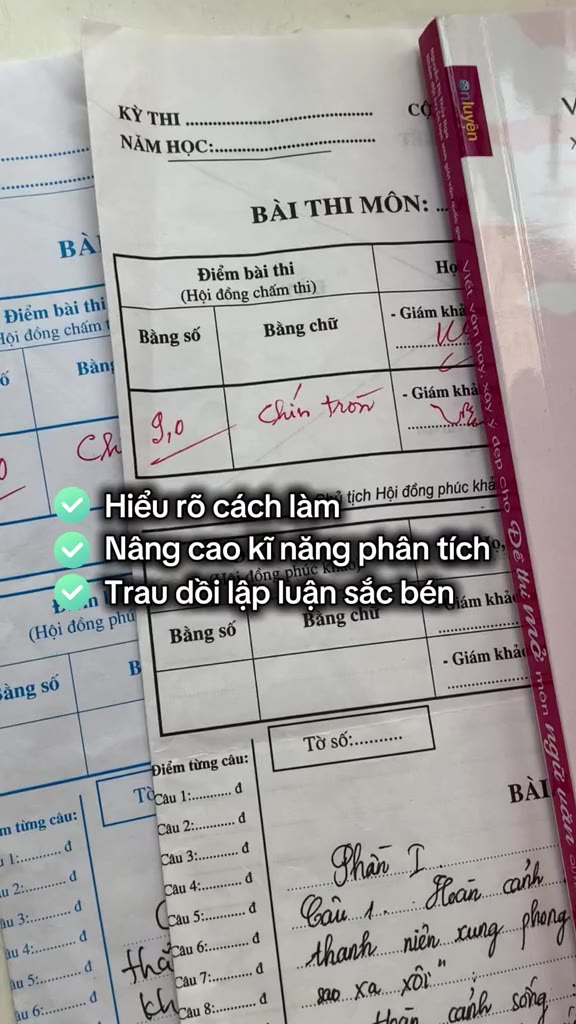 KỲ THI ........................
CỘ
NĂM HỌC:........................
BÀI THI MÔN: ...
Điểm bài thi
(Hội đồng chấm thi)
Họ
Bằng số
Bằng chữ
- Giám khả
9,0
Chín tròn
- Giám khả
tịch Hội đồng phúc khả
Hiểu rõ cách làm
Nâng cao kĩ năng phân tích
Trau dồi lập luận sắc bén
Bằng số
Bằng chữ
Giám khả
- Giám khả
Tờ số:...........
Điểm từng câu:
Câu 1:.......... đ
Câu 2:.......... đ
Câu 3:.......... đ
Câu 4:.......... đ
Câu 5:.......... đ
Câu 6:.......... đ
Câu 7:.......... đ
Câu 8:.......... đ
BÀI
Phần I
Câu 1. Hoàn cảnh
thanh niên xung phong
sao xa xôi"
Hoàn cảnh sống
BÀ
Điểm bài thi
Hội đồng chấm
Bằng
Ch
(Hội đồng phú
Bằng số
m từng câu:
1:.......... đ
2:.......... đ
âu 3:.......... đ
âu 4:.......... đ
âu 5:.......... đ
âu 6:.......... đ
thă
kh
onluyện
Viết văn hay, xây ý đẹp cho Đề thi mở môn ngữ văn